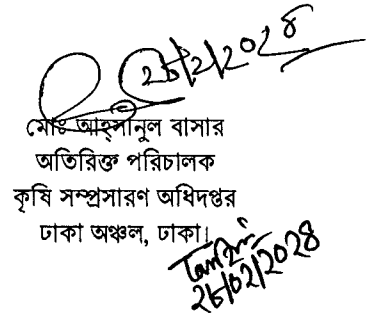 ২৮/২/২০২৪
মোঃ আহ্সানুল বাসার
অতিরিক্ত পরিচালক
কৃষি সম্প্রসারণ অধিদপ্তর
ঢাকা অঞ্চল, ঢাকা।
২৮/০২/২০২৪